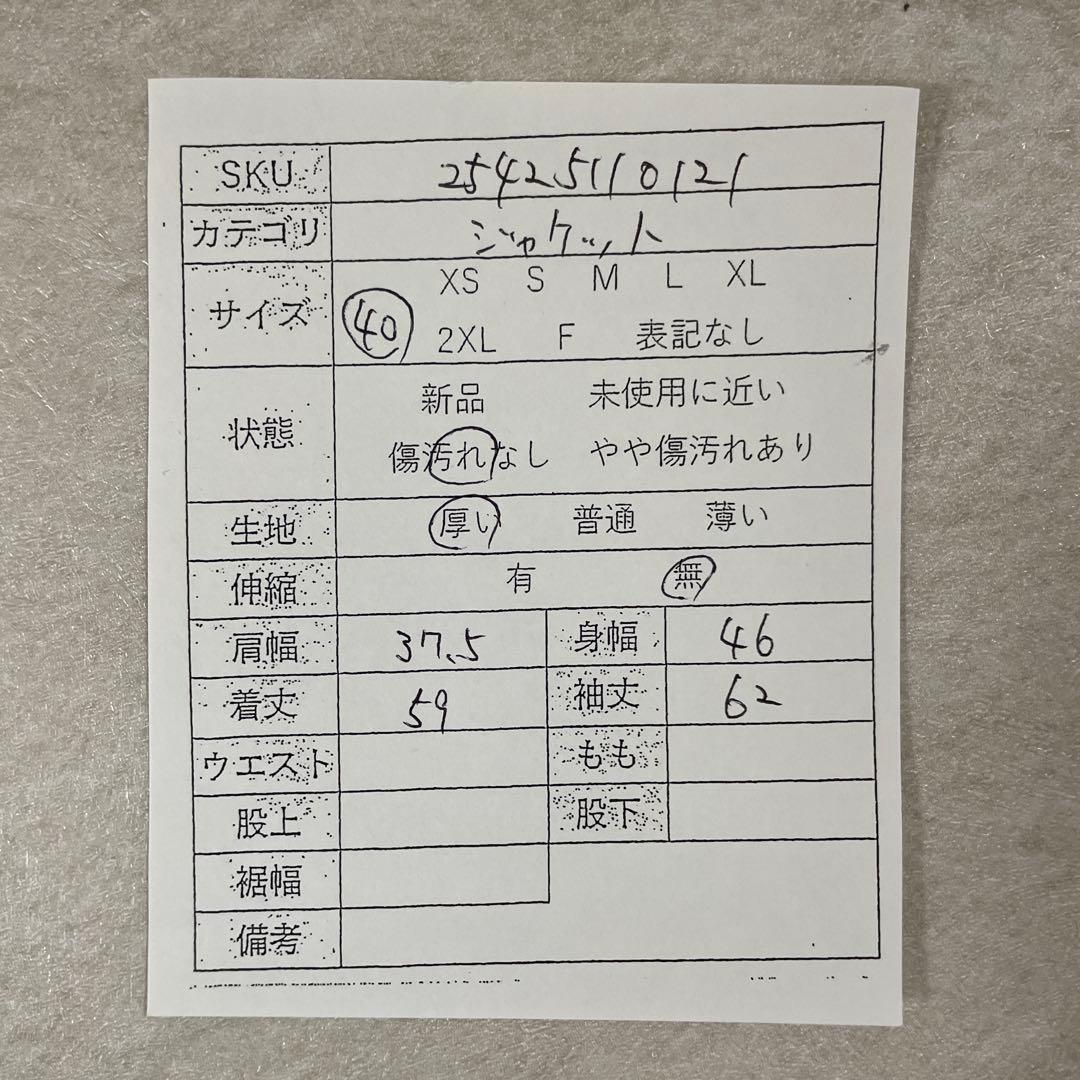 SKU 25425110121
カテゴリ ジャケット
サイズ XS S M L XL
40 2XL F 表記なし
状態 新品 未使用に近い
傷汚れなし やや傷汚れあり
生地 厚い 普通 薄い
伸縮 有 無
肩幅 37.5 身幅 46
着丈 59 袖丈 62
ウエスト もも
股上 股下
裾幅
備考